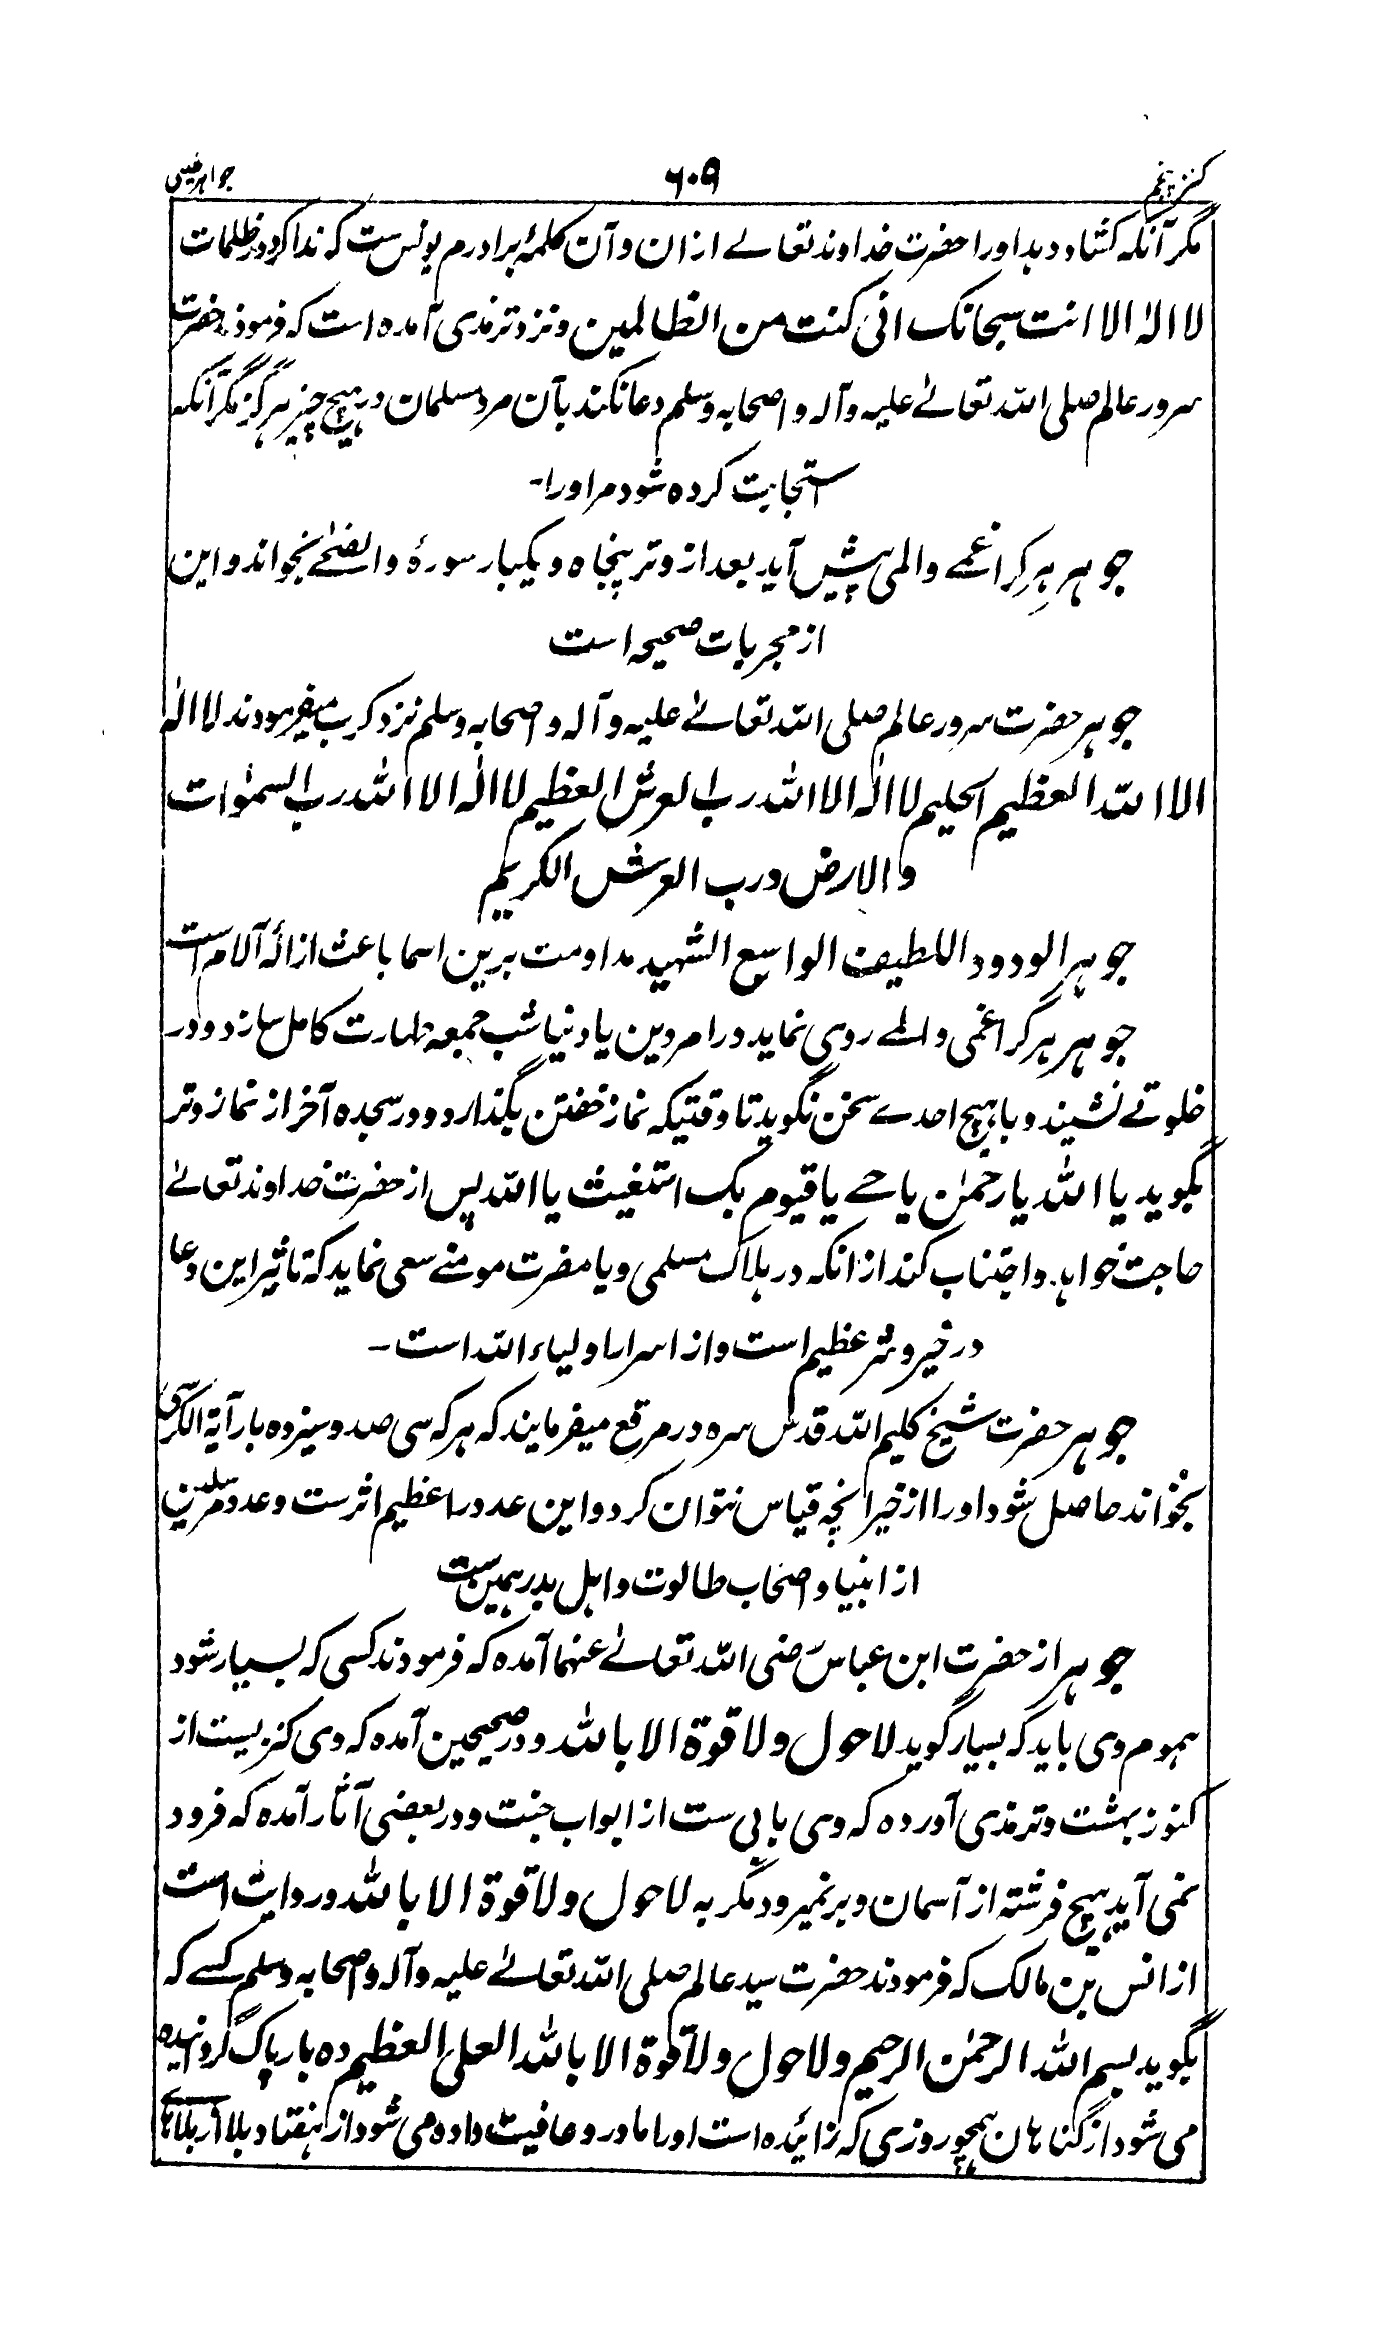 کنز پنجم ۶۰۹ جواہر نفیسی
مگر آنکہ کشاد دہد اورا حضرت خداوند تعالے ازان و آن کلمۂ برادرم یونس ست کہ ندا کرد در ظلمات
لا الہ الا انت سبحانک انی کنت من الظالمین و نزد ترمذی آمدہ است کہ فرمود حضرت
سرور عالم صلی اللہ تعالےٰ علیہ و آلہ و اصحابہ وسلم دعا نکند بآن مرد مسلمان در ہیچ چیز ہرگز مگر آنکہ
استجابت کردہ شود مر اورا۔
جوہر ہر کرا غمے والمی پیش آید بعد از وتر پنجاہ و یکبار سورۂ والضحےٰ بخواند و این
از مجربات صحیحہ است
جوہر حضرت سرور عالم صلی اللہ تعالےٰ علیہ و آلہ و اصحابہ وسلم نزد کرب میفرمودند لا الہ
الا اللہ العظیم الحلیم لا الہ الا اللہ رب العرش العظیم لا الہ الا اللہ رب السمٰوات
والارض و رب العرش الکریم
جوہر الودود اللطیف الواسع الشہید مداومت برین اسما باعث ازالۂ آلام است
جوہر ہر کرا غمی والمے روی نماید در امر دین یا دنیا شب جمعہ طہارت کامل سازد و در
خلوتے نشیند و با ہیچ احدے سخن نگوید تا وقتیکہ نماز خفتن بگذارد و در سجدہ آخر از نماز وتر
بگوید یا اللہ یا رحمٰن یا حے یا قیوم بک استغیث یا اللہ پس از حضرت خداوند تعالےٰ
حاجت خواہد و اجتناب کند از انکہ در ہلاک مسلمی و یا مضرت مومنے سعی نماید کہ تاثیر این دعا
در خیر و شر عظیم است و از اسرار اولیاء اللہ است۔
جوہر حضرت شیخ کلیم اللہ قدس سرہ در مرقع میفرمایند کہ ہر کہ سی صد و سیزدہ بار آیۃ الکرسی
بخواند حاصل شود اورا از خیر انچہ قیاس نتوان کرد و این عدد را عظیم اثر ست و عدد مرسلین
از انبیا و اصحاب طالوت و اہل بدر ہمین ست
جوہر از حضرت ابن عباس رضی اللہ تعالےٰ عنہما آمدہ کہ فرمودند کسی کہ بسیار شود
ہموم وی باید کہ بسیار گوید لا حول ولا قوۃ الا باللہ و در صحیحین آمدہ کہ وی کنزیست از
کنوز بہشت و ترمذی آوردہ کہ وی بابی ست از ابواب جنت و در بعضی آثار آمدہ کہ فرود
نمی آید ہیچ فرشتہ از آسمان و بر نمیرود مگر بہ لا حول ولا قوۃ الا باللہ و روایت است
از انس بن مالک کہ فرمودند حضرت سید عالم صلی اللہ تعالےٰ علیہ و آلہ و اصحابہ وسلم کسے کہ
بگوید بسم اللہ الرحمٰن الرحیم ولا حول ولا قوۃ الا باللہ العلی العظیم دہ بار پاک گردانیدہ
می شود از گناہان ہمچو روزی کہ زائیدہ است اورا مادر و عافیت دادہ می شود از ہفتاد بلا از بلاہائے